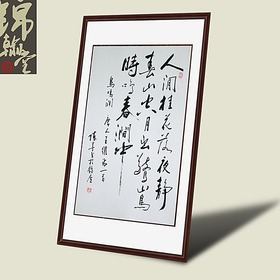 錦翰堂
人閒桂花落夜靜
春山空月出驚山鳥
時鳴春澗中
鳥鳴澗 唐人王維詩一首